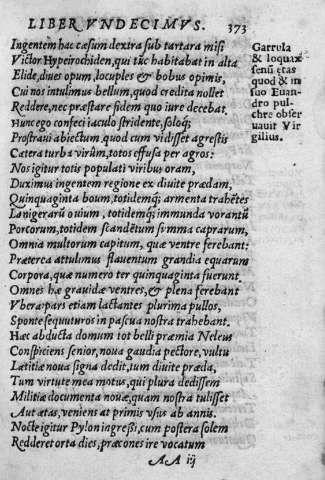 LIBER VNDECIMVS. 373
Ingentem hac cæsum dextra sub tartara misi
Victor Hypeirochiden, qui tũc habitabat in alta
Elide, diues opum, locuples & bobus opimis,
Cui nos intulimus bellum, quod credita nollet
Reddere, nec præstare fidem quo iure decebat.
Hunc ego confeci iaculo stridente, soloq́;
Prostraui abiectum, quod cum vidisset agrestis
Cætera turba virûm, totos effusa per agros:
Nos igitur totis populati viribus oram,
Duximus ingentem regione ex diuite prædam,
Quinquaginta boum, totidemq́; armenta trahẽtes
Lanigerarũ ouium, totidemq́; immunda vorantũ
Porcorum, totidem scandẽtum sīmma caprarum,
Omnia multorum capitum, quæ ventre ferebant:
Præterea attulimus flauentum grandia equarum
Corpora, quæ numero ter quinquaginta fuerunt.
Omnes hæ grauidæ ventres, & plena ferebant
Vbera: pars etiam lactantes plurima pullos,
Sponte sequuturos in pascua nostra trahebant.
Hæc abducta domum tot belli præmia Neleus
Conspiciens senior, noua gaudia pectore, vultu
Lætitiæ noua signa dedit, tum diuite præda,
Tum virtute mea motus, qui plura dedissem
Militiæ documenta nouæ, quam nostra tulisset
Aut ætas, veniens at primis vsus ab annis.
Nocte igitur Pylon ingressi, cum postera solem
Redderet orta dies, præcones ire vocatum
AA iij
Garrula
& loquax
senũ ętas
quod & in
suo Euan-
dro pul-
chre obser
uauit Vir
gilius.